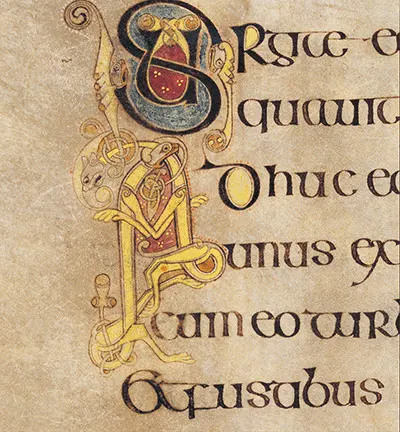 Surgite e
quauit
Adhuc eo
unus ex
cum eo turb
et fustibus